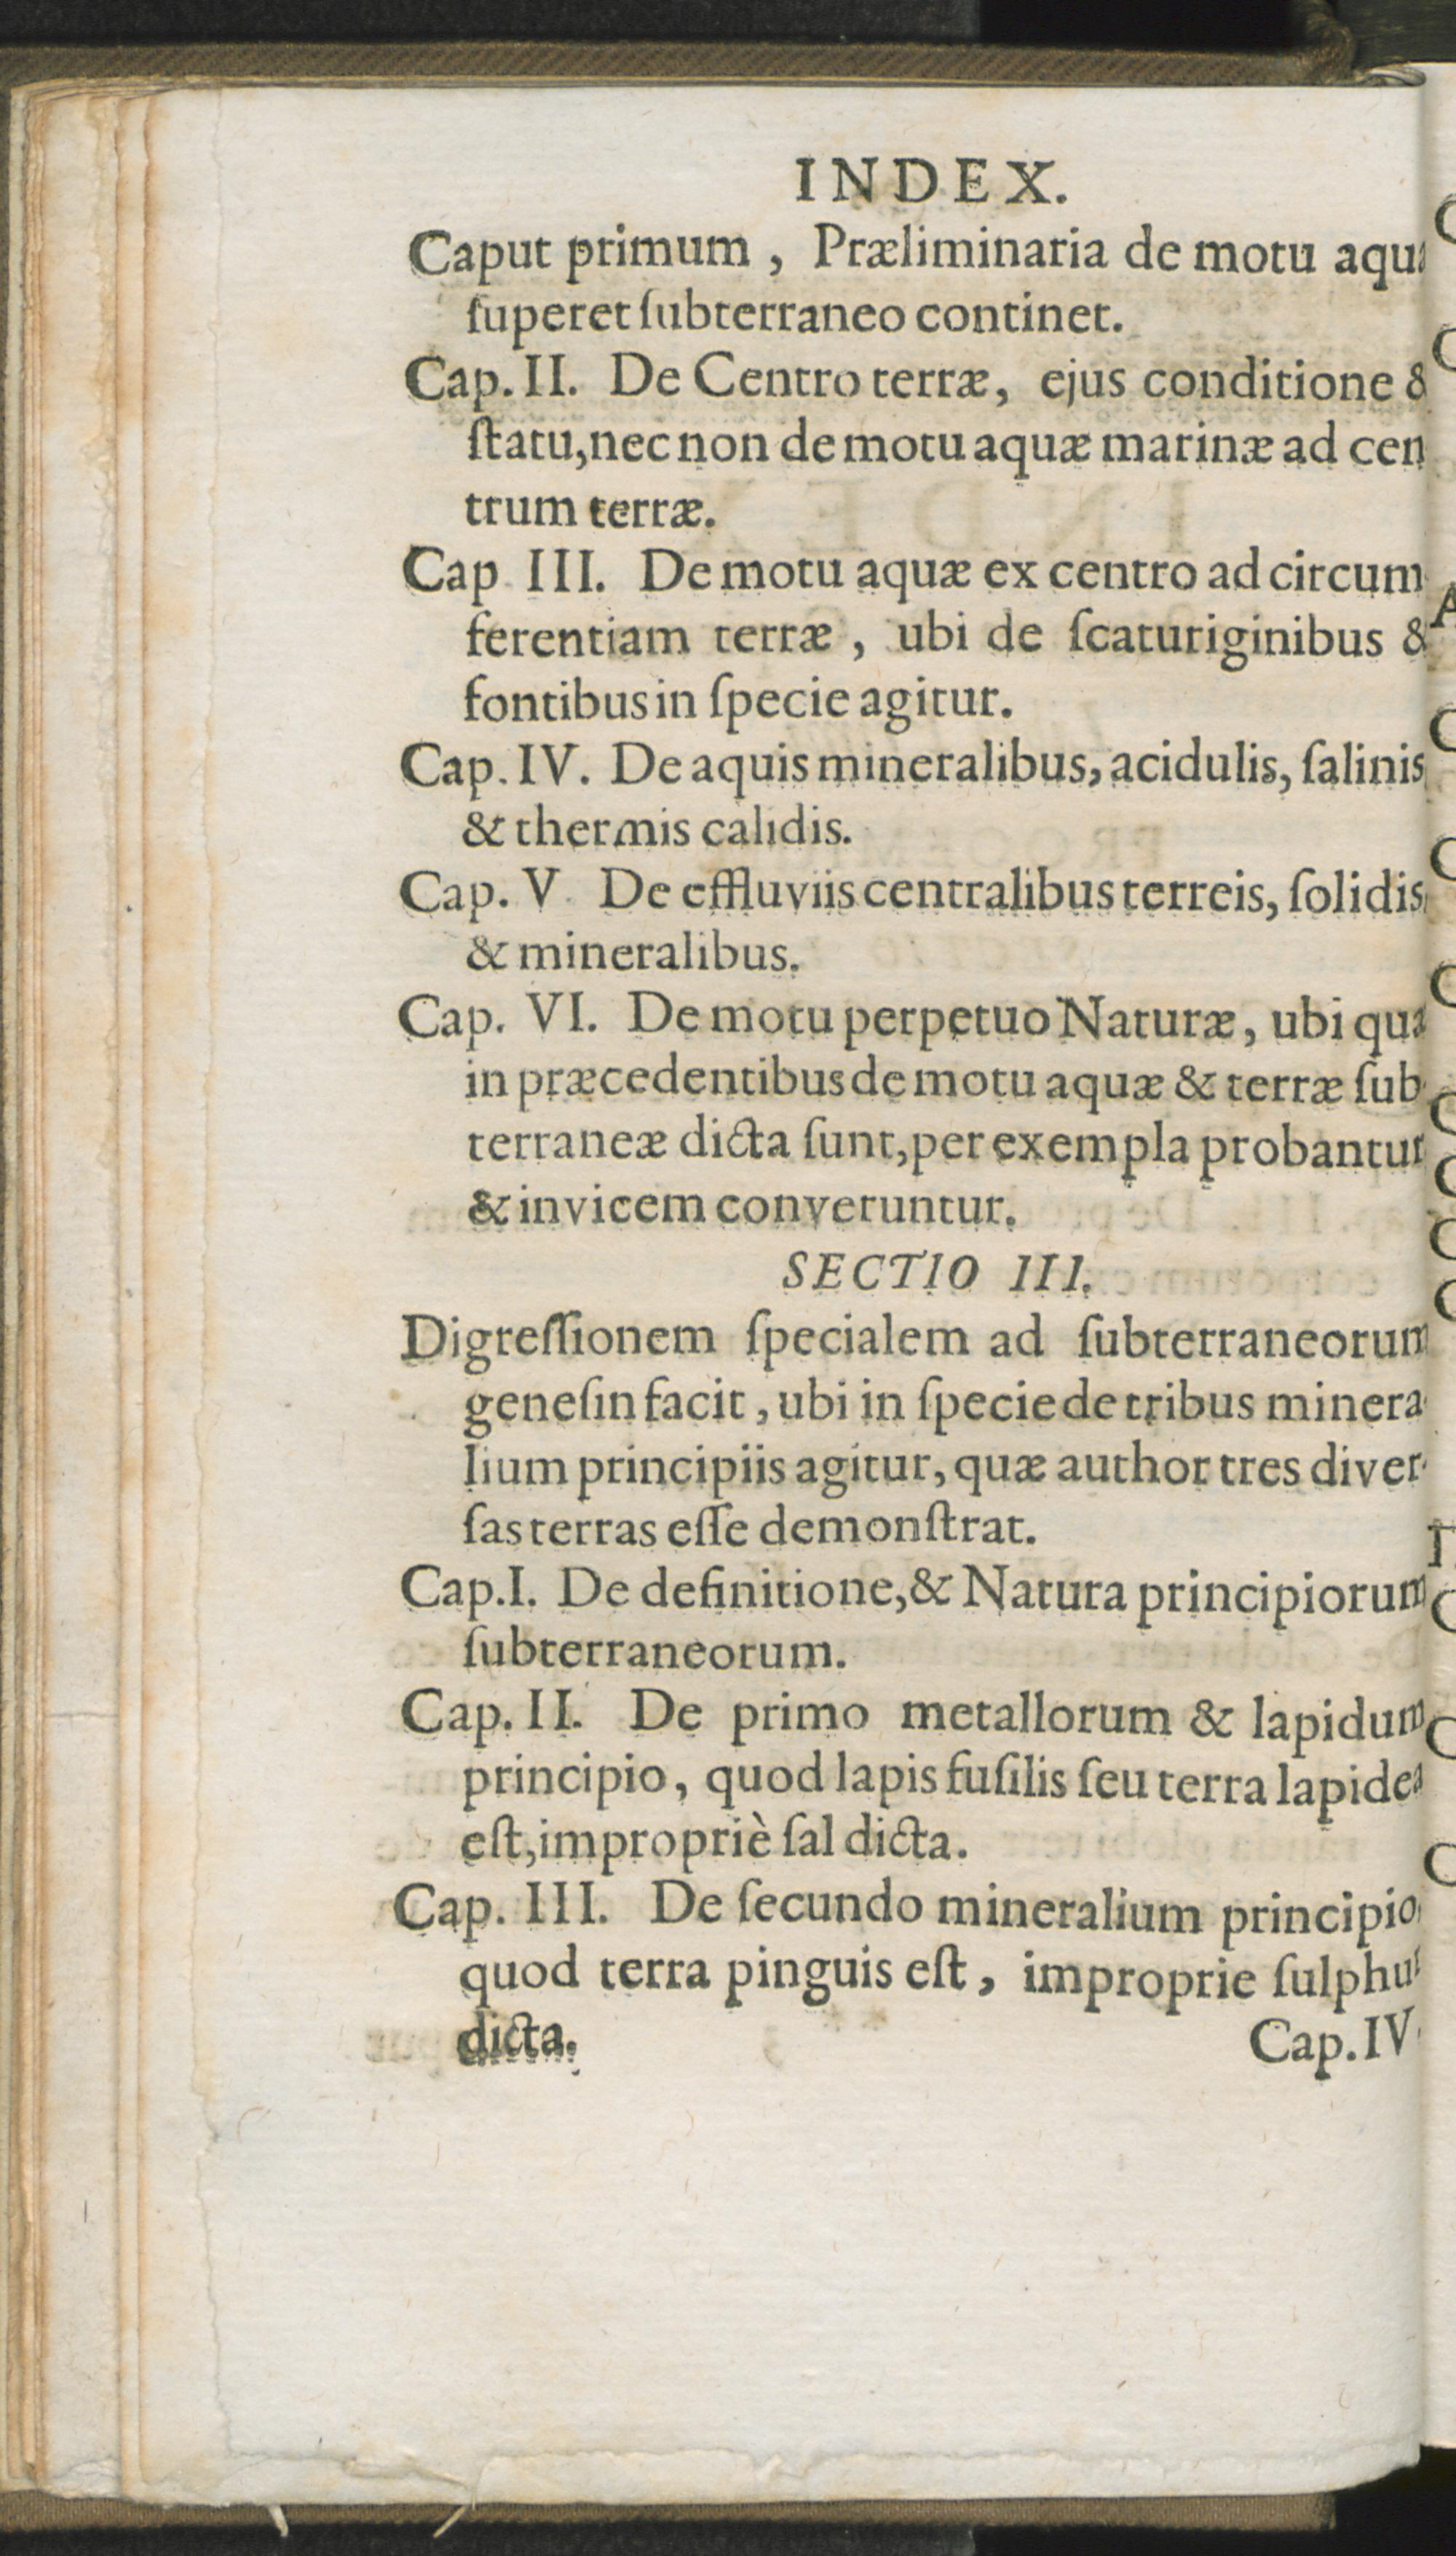 INDEX.
Caput primum, Præliminaria de motu
ſuperet ſubterraneo continet.
Cap. II. De Centro terræ, ejus conditione &
ſtatu, nec non de motu aquæ marinæ ad cen
trum terræ.
Cap III. De motu aquæ ex centro ad circum
ferentiam terræ, ubi de ſcaturiginibus &
fontibus in ſpecie agitur.
Cap. IV. De aquis mineralibus, acidulis, ſalinis
& thermis calidis.
Cap. V. De effluviis centralibus terreis, ſolidis
& mineralibus.
Cap. VI. De motu perpetuo Naturæ, ubi
in præcedentibus de motu aquæ & terræ ſub
terraneæ dicta ſunt, per exempla probantur
& invicem converuntur.
SECTIO III.
Digreſſionem ſpecialem ad ſubterraneorum
geneſin facit, ubi in ſpecie de tribus minera
lium principiis agitur, quæ author tres diver-
ſas terras eſſe demonſtrat.
Cap. I. De definitione, & Natura principiorum
ſubterraneorum.
Cap. II. De primo metallorum & lapidum
principio, quod lapis fuſilis ſeu terra lapidea
eſt, impropriè ſal dicta.
Cap. III. De ſecundo mineralium principio
quod terra pinguis eſt, improprie ſulphur
dicta.
Cap. IV